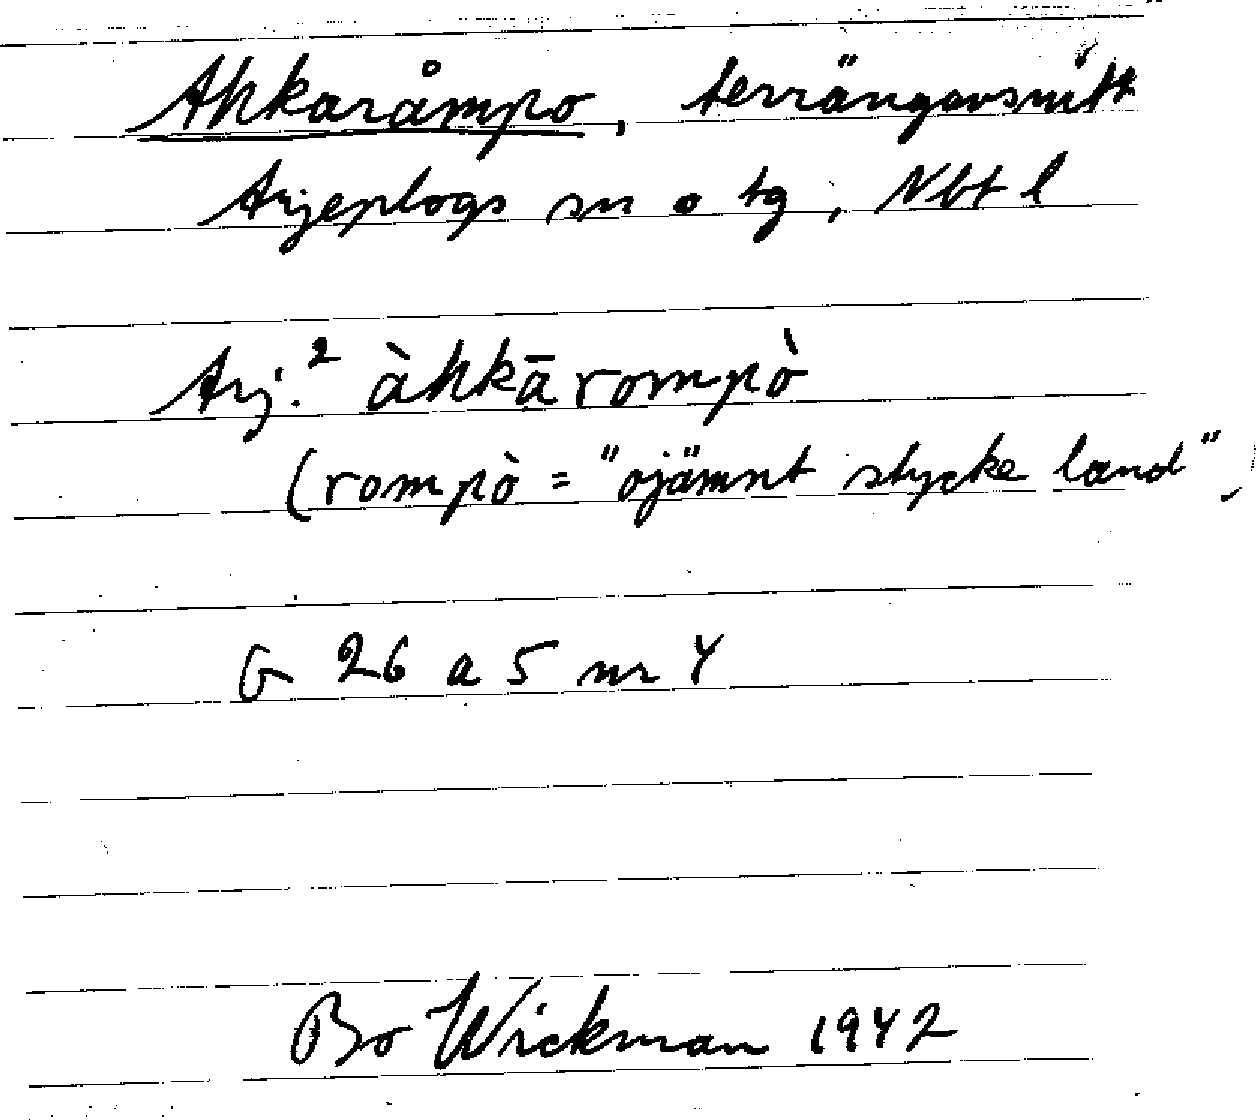 Ahkaråmpo, terrängavsnitt
Arjeplogs sn o tg, Nbt l
Arj.² àhkārompò
(rompò = "ojämnt stycke land")
G 26 a 5 nr 4
Bo Wickman 1942